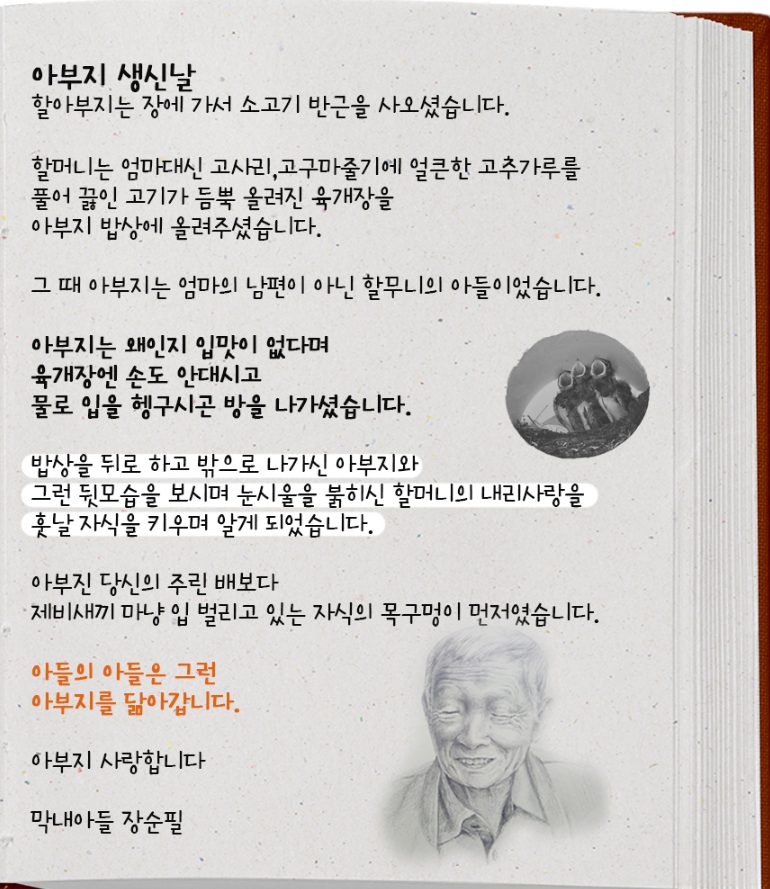 아부지 생신날
할아부지는 장에 가서 소고기 반근을 사오셨습니다.
할머니는 엄마대신 고사리,고구마줄기에 얼큰한 고추가루를
풀어 끓인 고기가 듬뿍 올려진 육개장을
아부지 밥상에 올려주셨습니다.
그 때 아부지는 엄마의 남편이 아닌 할무니의 아들이었습니다.
아부지는 왜인지 입맛이 없다며
육개장엔 손도 안대시고
물로 입을 헹구시곤 방을 나가셨습니다.
밥상을 뒤로 하고 밖으로 나가신 아부지와
그런 뒷모습을 보시며 눈시울을 붉히신 할머니의 내리사랑을
훗날 자식을 키우며 알게 되었습니다.
아부진 당신의 주린 배보다
제비새끼 마냥 입 벌리고 있는 자식의 목구멍이 먼저였습니다.
아들의 아들은 그런
아부지를 닮아갑니다.
아부지 사랑합니다
막내아들 장순필